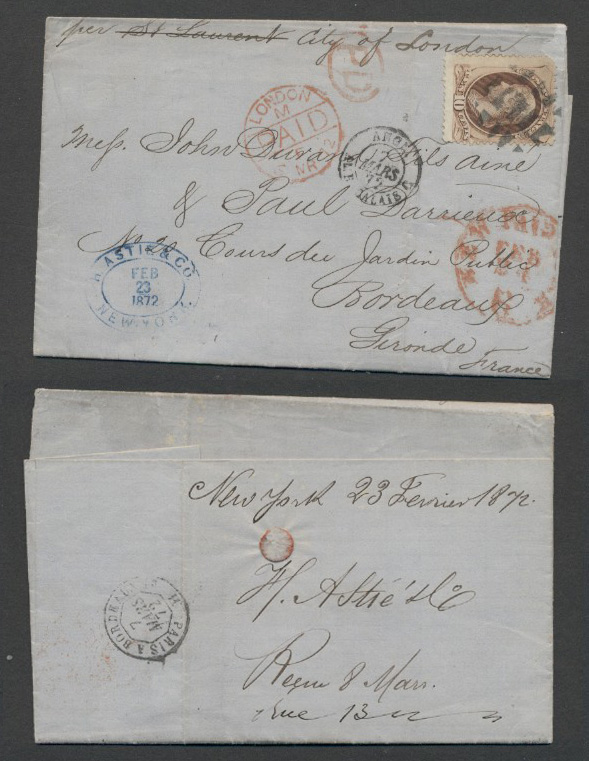 per St Laurent City of London
PD
LONDON
M
PAID
MR 72
ANGL.
MARS
72
CALAIS
Mess. John Duran Fils aîné
& Paul Darrieux
No 20 Cours du Jardin Public
Bordeaux
Gironde
France
H. ASTIE & CO
FEB
23
1872
NEW YORK.
NEW
PAID
FEB
New York 23 Février 1872.
PARIS A BORDEAUX
7
MARS
72
H. Astié & Co
Reçu 8 Mars.
13